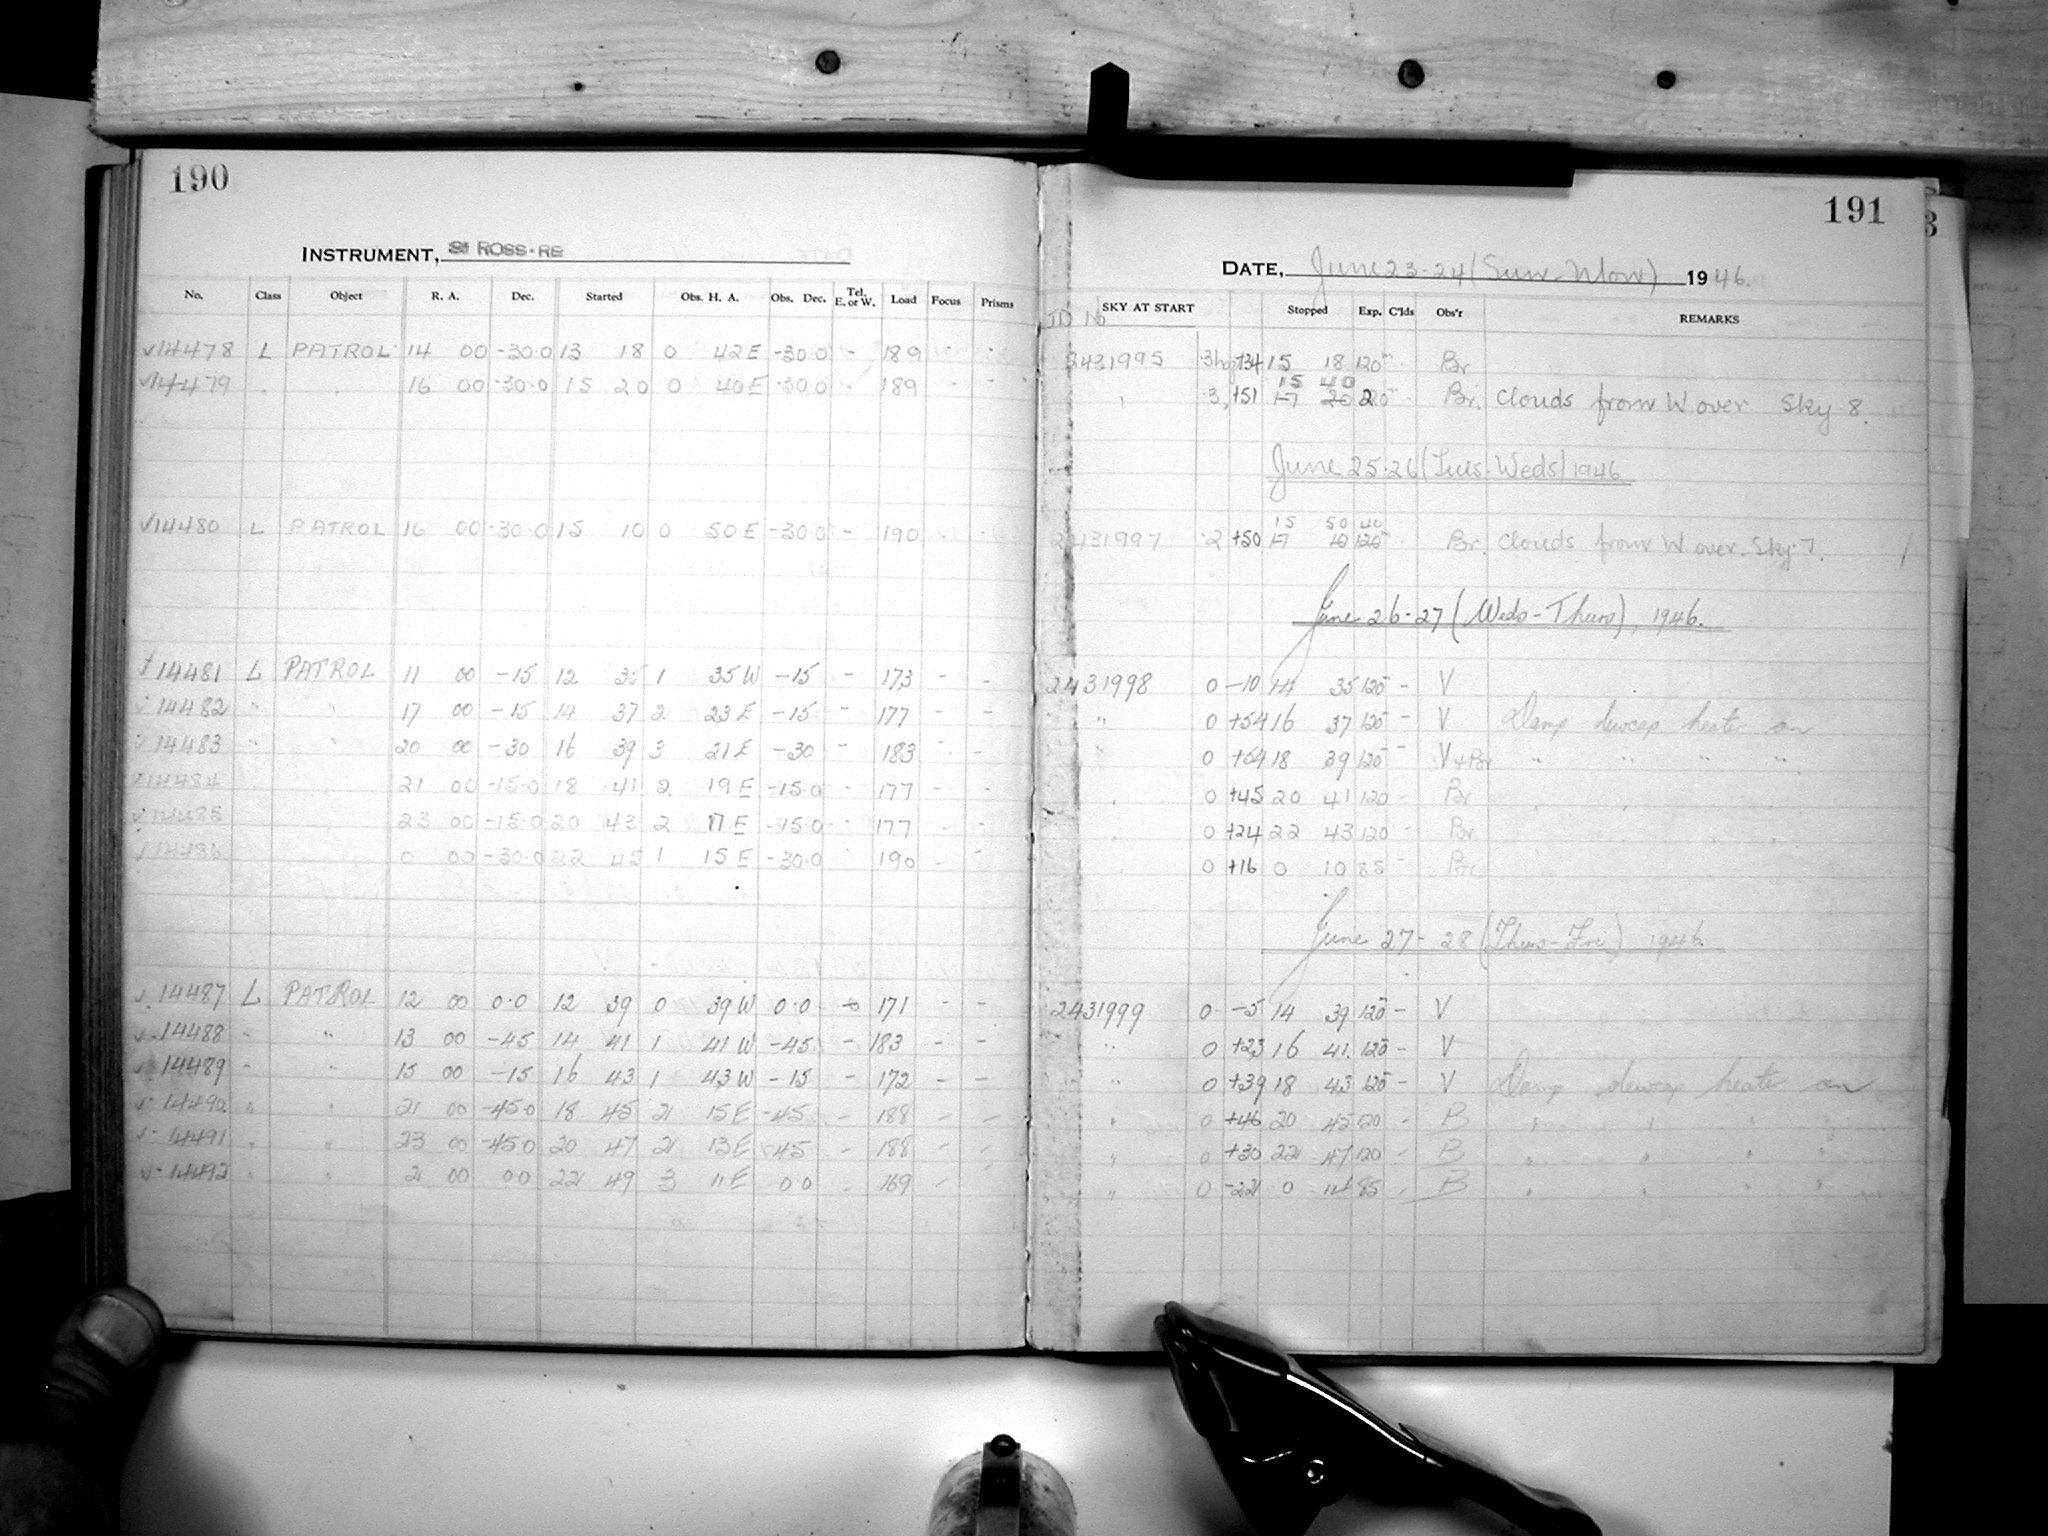 190
INSTRUMENT, ROSS-RB
No. Class Object R. A. Dec. Started Obs. H. A. Obs. Dec. Tel. E. or W. Load Focus Prisms
14478 L PATROL 14 00 -30.0 13 18 0 42E -30.0 - 189
14479 16 00 -30.0 15 20 0 40E -30.0 189 -
14480 L PATROL 16 00 -30.0 15 10 0 50E -30.0 - 190
14481 L PATROL 11 00 -15 12 35 1 35W -15 - 173 - -
14482 " " 17 00 -15 14 37 2 23E -15 - 177 - -
14483 " " 20 00 -30 16 39 3 21E -30 - 183 - -
14484 21 00 -15.0 18 41 2 19E -15.0 - 177 - -
14485 23 00 -15.0 20 43 2 17E -15.0 177 - -
14486 0 00 -30.0 22 45 1 15E -30.0 190 - -
14487 L PATROL 12 00 0.0 12 39 0 39W 0.0 171 - -
14488 " " 13 00 -45 14 41 1 41W -45 - 183 - -
14489 " " 15 00 -15 16 43 1 43W -15 - 172 - -
14490 " " 21 00 -45.0 18 45 2 15E -45 - 188 - -
14491 " " 23 00 -45.0 20 47 2 13E -45 - 188 - -
14492 " " 2 00 0.0 22 49 3 11E 0.0 - 169 -
191
3
DATE, June 23-24 (Sun-Mon) 1946.
SKY AT START Stopped Exp. C'lds Obs'r REMARKS
JD No
2431995 +34 15 18 120 Br
15 40
" 3 +51 17 20 20 Br. Clouds from W over Sky 8.
June 25-26 (Tues-Weds) 1946
15 50 40
2431997 2 +50 17 10 120 Br. Clouds from W over. Sky 7.
June 26-27 (Weds-Thurs), 1946.
2431998 0 -10 14 35 120 - V
" 0 +54 16 37 120 - V Damp dewcap heater on
0 +54 18 39 120 - V+Br " " " "
0 +45 20 41 120 - Br
0 +24 22 43 120 - Br
0 +16 0 10 85 - Br
June 27-28 (Thurs-Fri) 1946.
2431999 0 -5 14 39 120 - V
" 0 +23 16 41 120 - V
" 0 +39 18 43 120 - V Damp dewcap heater on
" 0 +46 20 45 120 - B " " " "
" 0 +30 22 47 120 - B " " " "
" 0 -22 0 14 85 - B " " " "